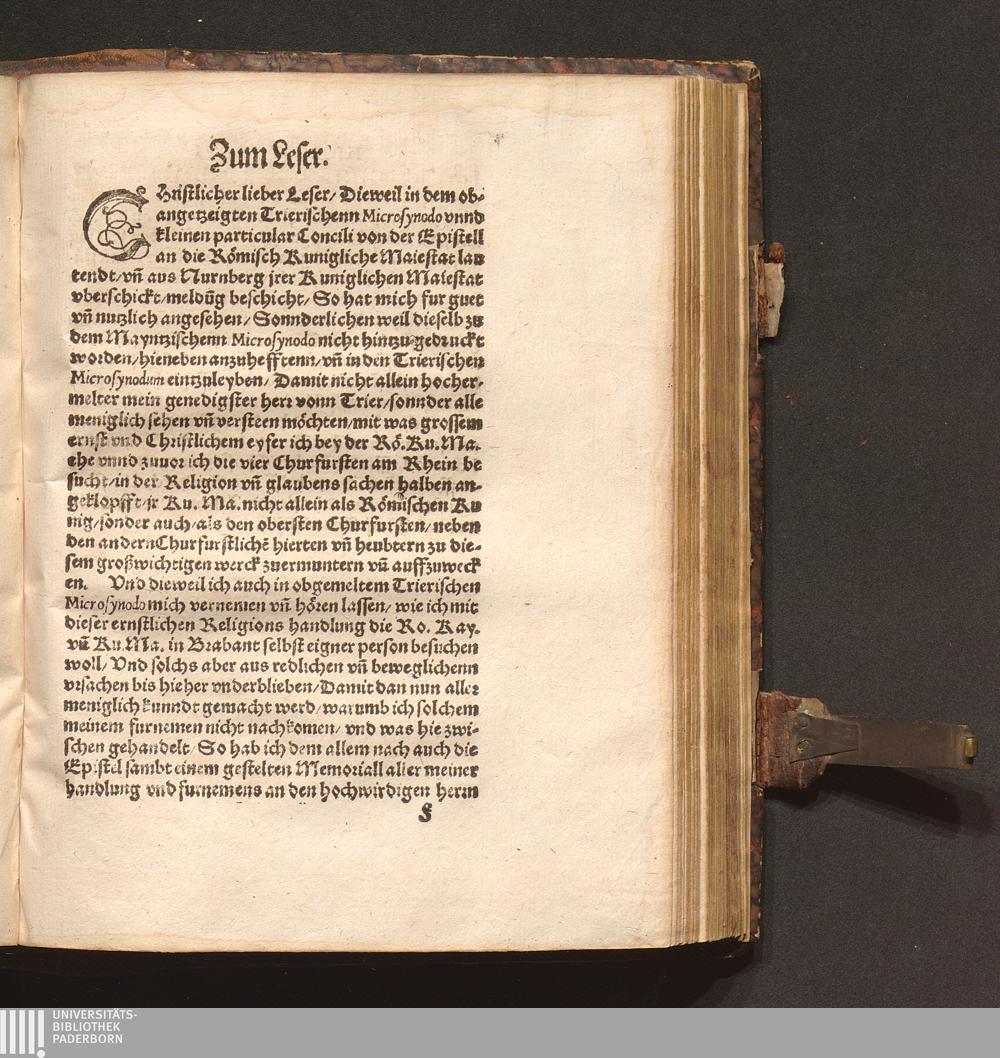 Zum Leser.
CHristlicher lieber Leser/ Dieweil in dem ob-
angetzeigten Trierischenn Microsynodo vnnd
kleinen particular Concili von der Epistell
an die Römisch Kunigliche Maiestat lau
tendt/ vñ aus Nurnberg jrer Kuniglichen Maiestat
vberschickt/ meldũg beschicht/ So hat mich fur guet
vñ nutzlich angesehen/ Sonnderlichen weil dieselb zu
dem Mayntzischenn Microsynodo nicht hintzu gedruckt
worden/ hieneben anzuhefftenn/ vñ in den Trierischen
Microsynodum eintzuleyben/ Damit nicht allein hocher-
melter mein genedigster herr vonn Trier/ sonnder alle
meniglich sehen vñ versteen möchten/ mit was grossem
ernst vnd Christlichem eyfer ich bey der Rö. Ku. Ma.
ehe vnnd zuuor ich die vier Churfursten am Rhein be
sucht/ in der Religion vñ glaubens sachen halben an-
geklopfft/ jr Ku. Ma. nicht allein als Römischen Ku
nig/ sonder auch/ als den obersten Churfursten/ neben
den andern Churfurstlichẽ hierten vñ heubtern zu die-
sem großwichtigen werck zuermuntern vñ auffzuweck
en. Vnd dieweil ich auch in obgemeltem Trierischen
Microsynodo mich vernemen vñ hören lassen/ wie ich mit
dieser ernstlichen Religions handlung die Ro. Kay.
vñ Ku. Ma. in Brabant selbst eigner person besuchen
woll/ Vnd solchs aber aus redlichen vñ beweglichenn
vrsachen bis hieher vnderblieben/ Damit dan nun aller
meniglich kunndt gemacht werd/ warumb ich solchem
meinem furnemen nicht nachkomen/ vnd was hie zwi-
schen gehandelt/ So hab ich dem allem nach auch die
Epistel sambt einem gestelten Memoriall aller meiner
handlung vnd furnemens an den hochwirdigen herrn
F
UNIVERSITÄTS-
BIBLIOTHEK
PADERBORN